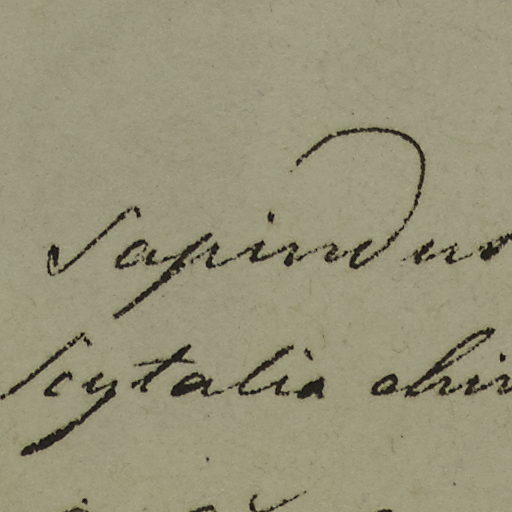 Sapindus
Scytalia chin